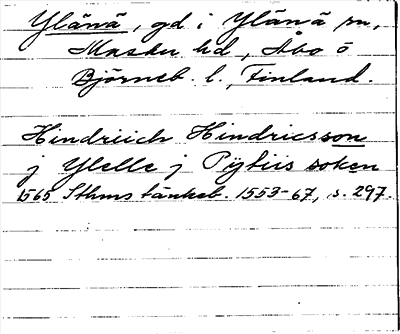 Yläné, gd i Yläné sn,
Masku hd, Åbo o
Björneb. l., Finland.
Hindriich Hindricsson
j Ylelle j Pÿtiis soken
1565 Sthms tänkeb. 1553-67, s. 297.